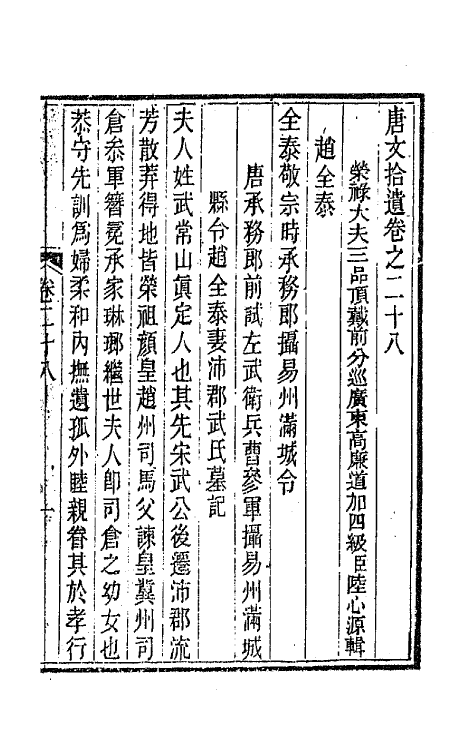 唐文拾遺卷之二十八
榮祿大夫三品頂戴前分巡廣東高廉道加四級臣陸心源輯
趙全泰
全泰敬宗時承務郎攝易州滿城令
唐承務郎前試左武衛兵曹參軍攝易州滿城
縣令趙全泰妻沛郡武氏墓記
夫人姓武常山眞定人也其先宋武公後遷沛郡流
芳散莽得地皆榮祖顏皇趙州司馬父諫皇冀州司
倉叅軍簪冕承家琳瑯繼世夫人卽司倉之幼女也
恭守先訓爲婦柔和內撫遺孤外睦親眷其於孝行
卷二十八
一